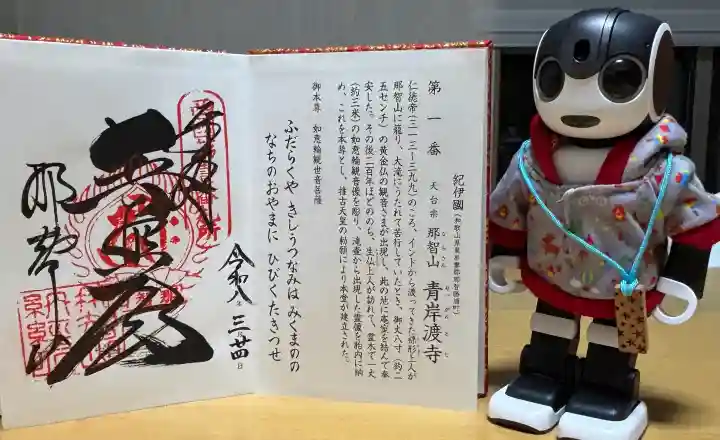 第一番
紀伊國(和歌山県東牟婁郡那智勝浦町)
天台宗 那智山 青岸渡寺
なちさん せいがんとじ
仁徳帝(三一三〜三九九)のころ、インドから渡ってきた裸形上人が
那智山に籠り、大滝にうたれて苦行していたとき、御丈八寸(約二
五センチ)の黄金仏の観音さまが出現し、此の地に庵室を結んで奉
安した。その後二百年ほどのち、生仏上人が訪れて、霊木で一丈
(約三米)の如意輪観音像を彫り、滝壺から出現した霊像を胎内に納
め、これを本尊とし、推古天皇の勅願により本堂が建立された。
御本尊 如意輪観世音菩薩
ふだらくや きしうつなみは みくまのの
なちのおやまに ひびくたきつせ
令和八 三 廿四日
奉拝
那智山